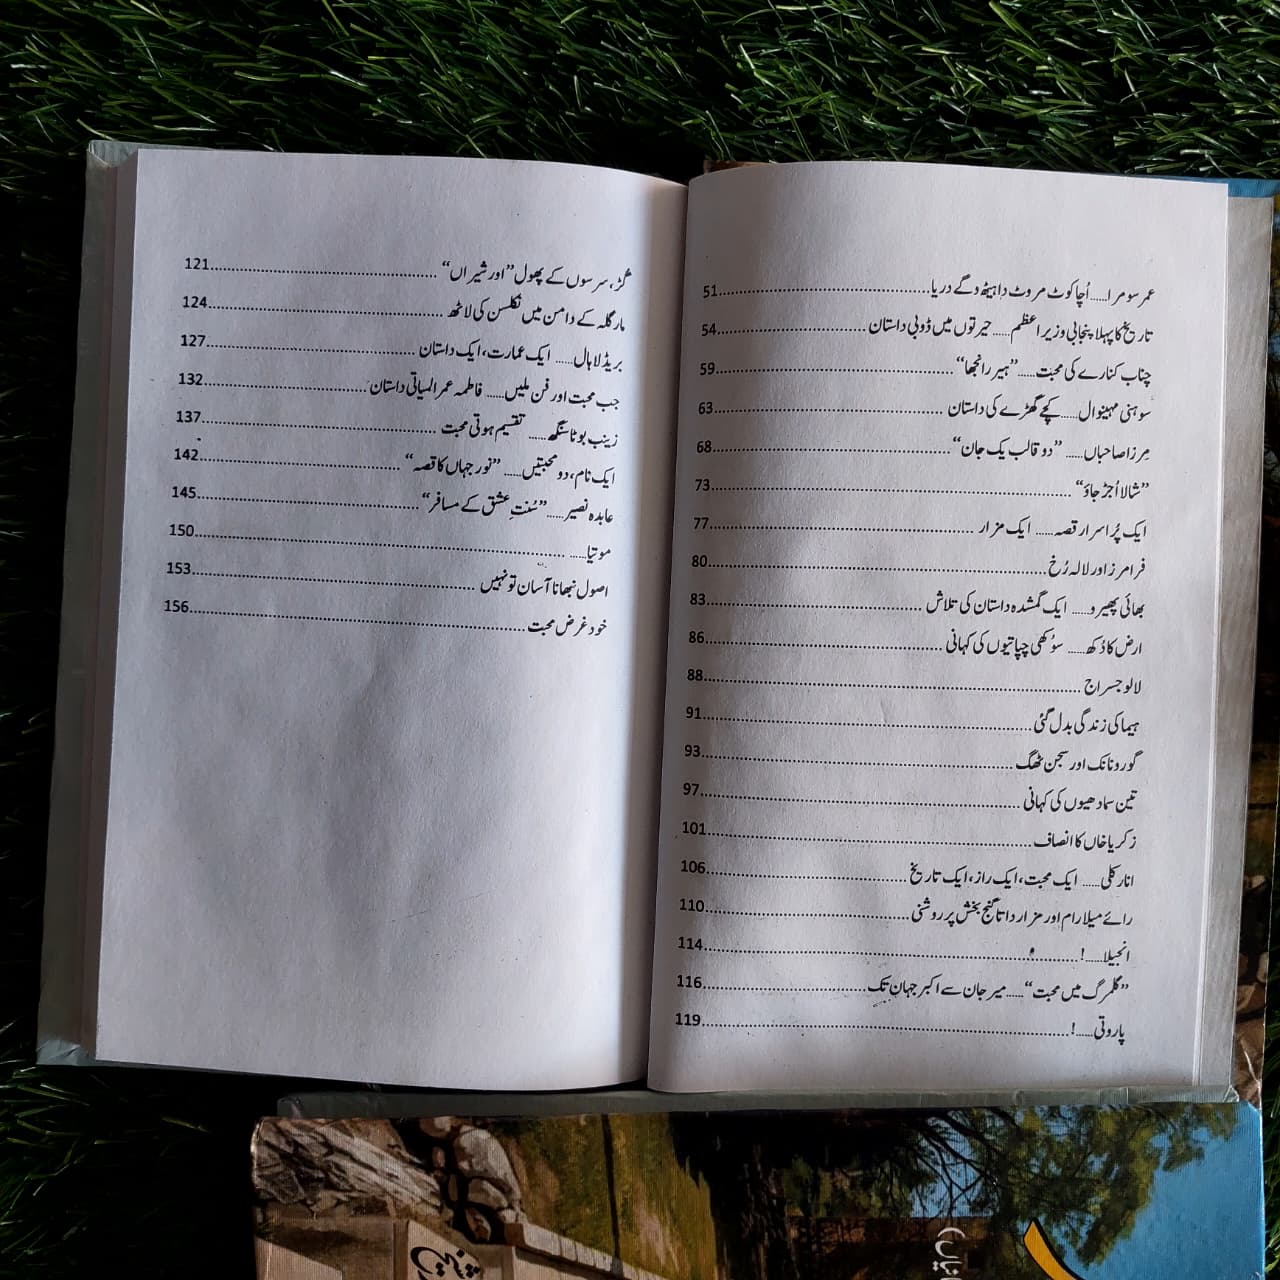 عمر سومرا......اُچا کوٹ مروٹ دا ہیٹھ وگے دریا......51
تاریخ کا پہلا پنجابی وزیر اعظم...... حیرتوں میں ڈوبی داستان......54
چناب کنارے کی محبت......”ہیر رانجھا“......59
سوہنی مہینوال......کچے گھڑے کی داستان......63
مرزا صاحباں...... ”دو قالب یک جان“......68
”شالا اُجڑ جاؤ“......73
ایک پُراسرار قصہ...... ایک مزار......77
فرامرز اور لالہ رُخ......80
بھائی پھیرو...... ایک گمشدہ داستان کی تلاش......83
ارض کا دُکھ...... سوُکھی چپاتیوں کی کہانی......86
لالو جسراج......88
ہیما کی زندگی بدل گئی......91
گورونانک اور سجن ٹھگ......93
تین سمادھیوں کی کہانی......97
زکریا خاں کا انصاف......101
انارکلی...... ایک محبت، ایک راز، ایک تاریخ......106
رائے میلا رام اور مزار داتا گنج بخش پر روشنی......110
انجیلا......!......114
”گلمرگ میں محبت“......میر جان سے اکبر جہان تک......116
پاروتی......!......119
گڑ، سرسوں کے پھول ”اور شیراں“......121
مارگلہ کے دامن میں نکلسن کی لاٹھ......124
بریڈلا ہال...... ایک عمارت، ایک داستان......127
جب محبت اور فن ملیں...... فاطمہ عمر المیاتی داستان......132
زینب بوٹا سنگھ...... تقسیم ہوتی محبت......137
ایک نام، دو محبتیں...... ”نور جہاں کا قصہ“......142
عابدہ نصیر......”سُنتِ عشق کے مسافر“......145
موتیا......150
اصول نبھانا آسان تو نہیں......153
خود غرض محبت......156